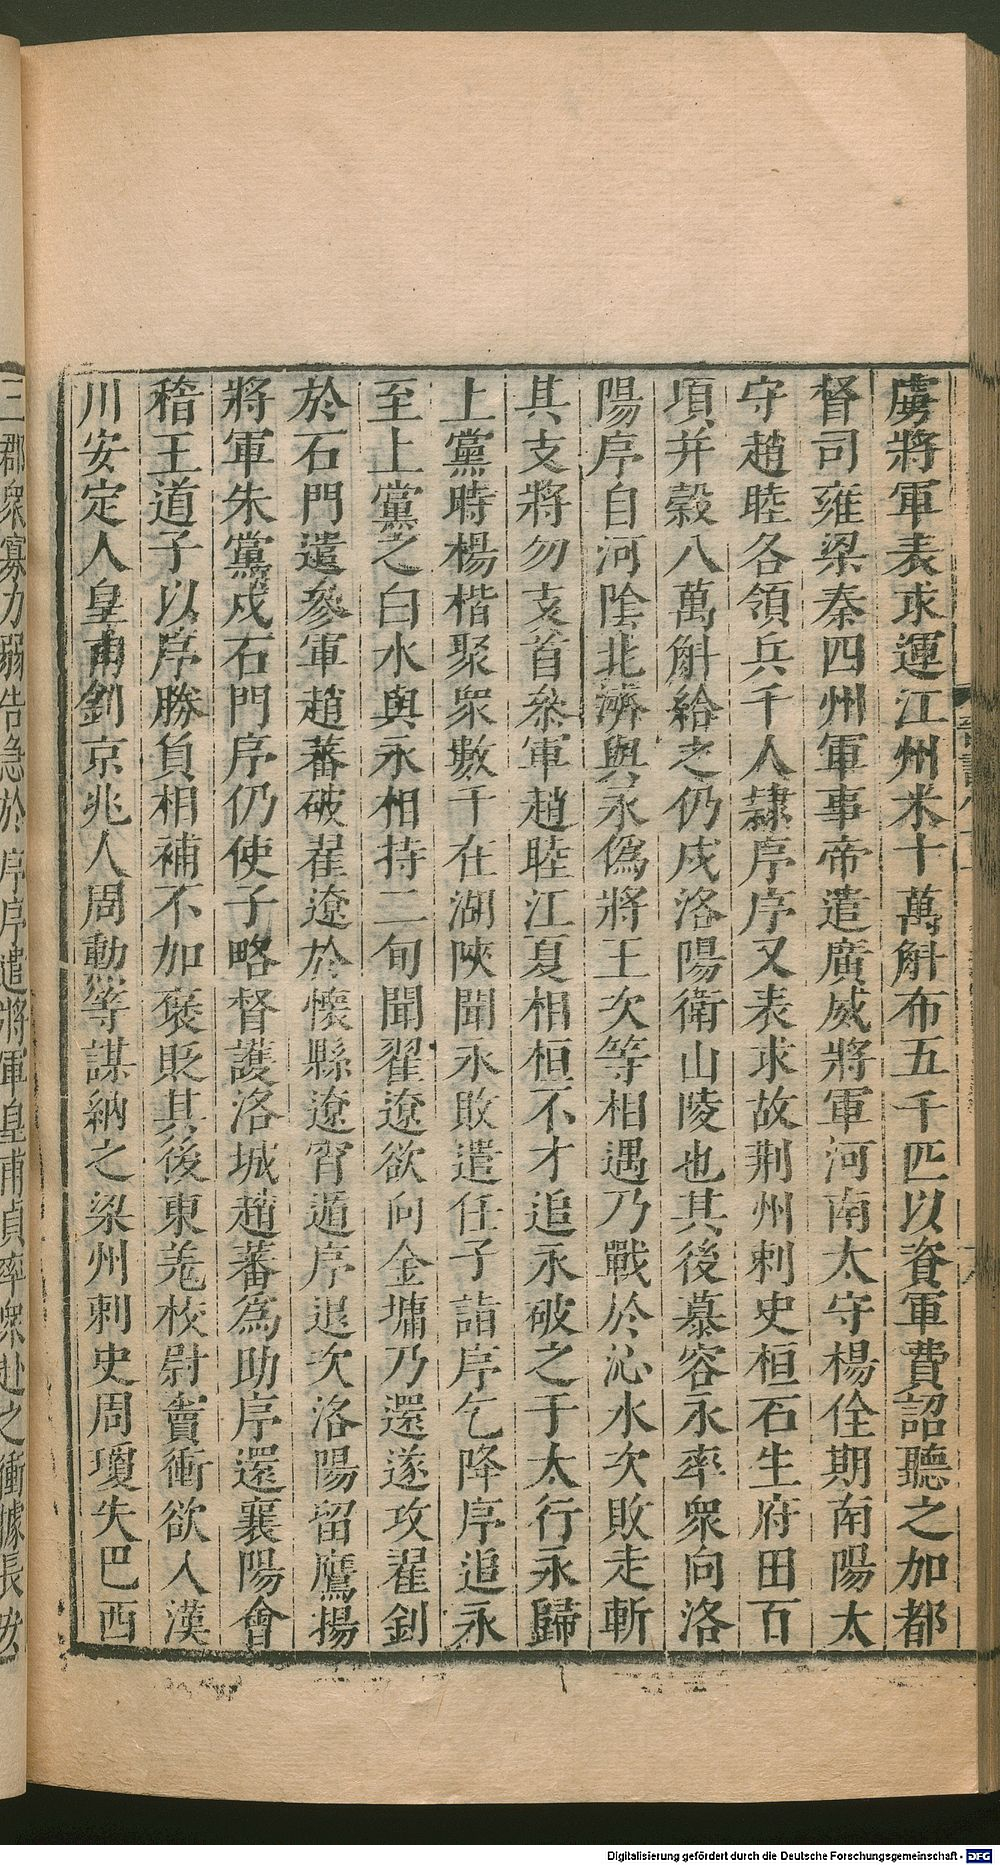 虜將軍表求運江州米十萬斛布五千匹以資軍費詔聽之加都
督司雍梁秦四州軍事帝遣廣威將軍河南太守楊佺期南陽太
守趙睦各領兵千人隷序序又表求故荆州刺史桓石生府田百
項并穀八萬斛給之仍戍洛陽衛山陵也其後慕容永率衆向洛
陽序自河陰北濟與永偽將王次等相遇乃戰於沁水次敗走斬
其支將勿支首叅軍趙睦江夏相桓不才追永破之于太行永歸
上黨時楊楷聚衆數千在湖陝聞永敗遣任子詣序乞降序追永
至上黨之白水與永相持二旬聞翟遼欲向金墉乃還遂攻翟釗
於石門遣參軍趙蕃破翟遼於懷縣遼宵遁序退次洛陽留鷹揚
將軍朱黨戍石門序仍使子略督護洛城趙蕃為助序還襄陽會
稽王道子以序勝負相補不加襃貶其後東羌校尉竇衝欲入漢
川安定人皇甫釗京兆人周勲等謀納之梁州刺史周瓊失巴西
三郡衆寡力弱告急於序序遣將軍皇甫貞率衆赴之衝據長安
Digitalisierung gefördert durch die Deutsche Forschungsgemeinschaft - DFG